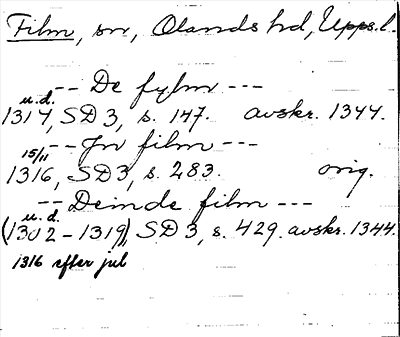 Film, sn, Olands hd, Upps.l.
-- De fylm ---
u.d.
1314, SD 3, s. 147. avskr. 1344.
-- Jn film ---
15/11
1316, SD3, s. 283. orig.
-- Deinde film ---
u.d.
(1302-1319), SD 3, s. 429. avskr. 1344.
1316 efter jul